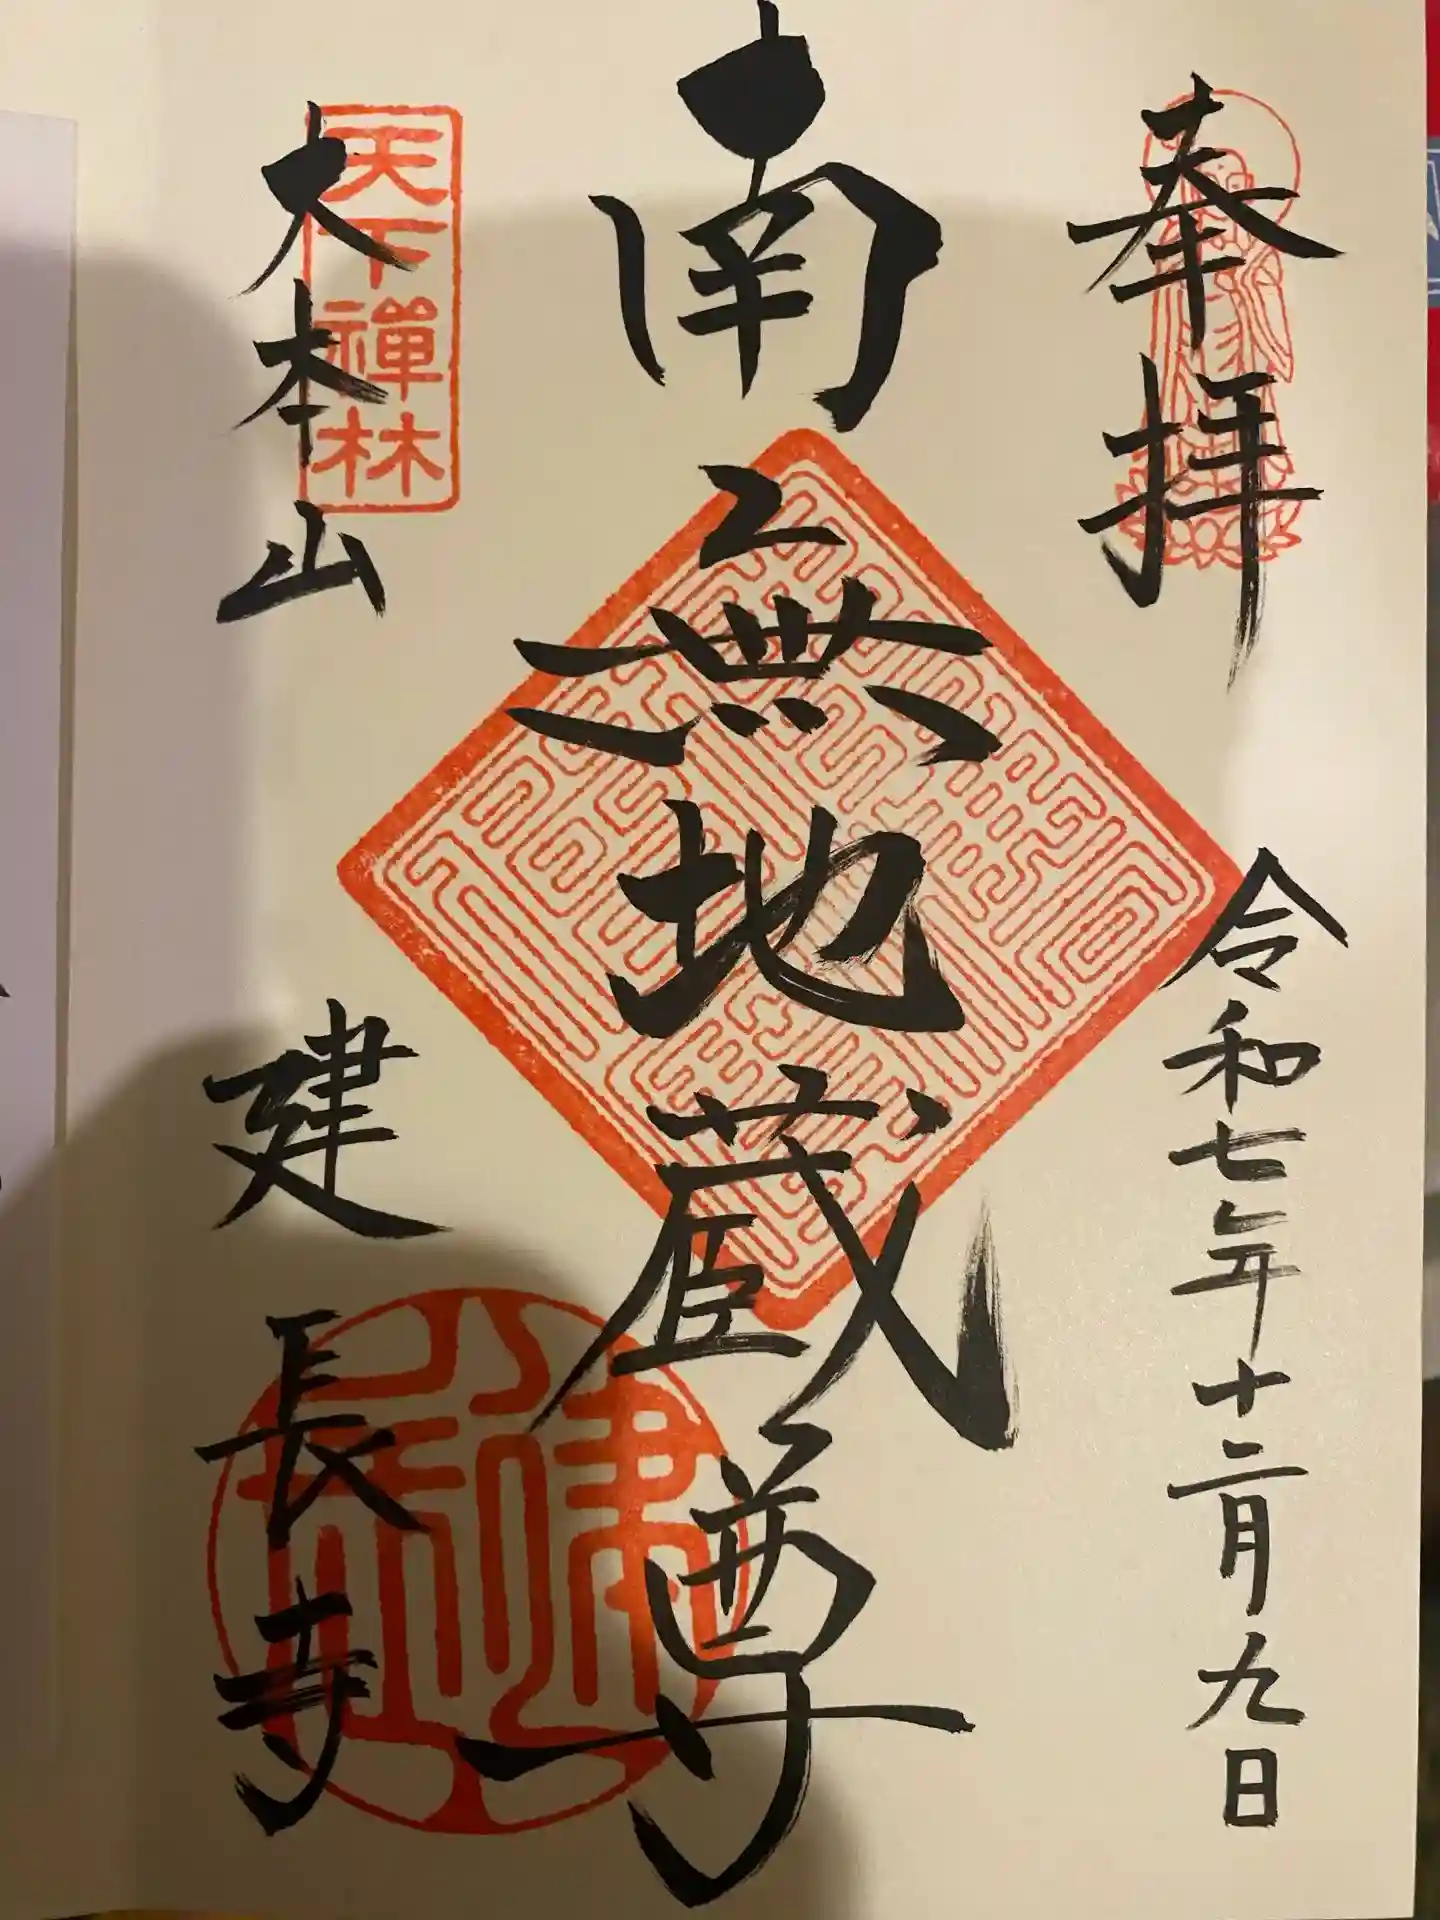 奉拝
令和七年十二月九日
南無地蔵尊
天下禅林
大本山
建長寺